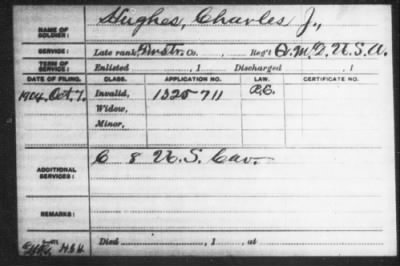 NAME OF SOLDIER: Hughes, Charles J.,
SERVICE: Late rank, Co. Reg't Q.M.D., U.S.A.
TERM OF SERVICE: Enlisted , 1 Discharged , 1
DATE OF FILING. CLASS. APPLICATION NO. LAW. CERTIFICATE NO.
1904, Oct. 7. Invalid, 1325 711
Widow,
Minor,
ADDITIONAL SERVICES: C 8 U.S. Cav.
REMARKS:
Died , 1 , at